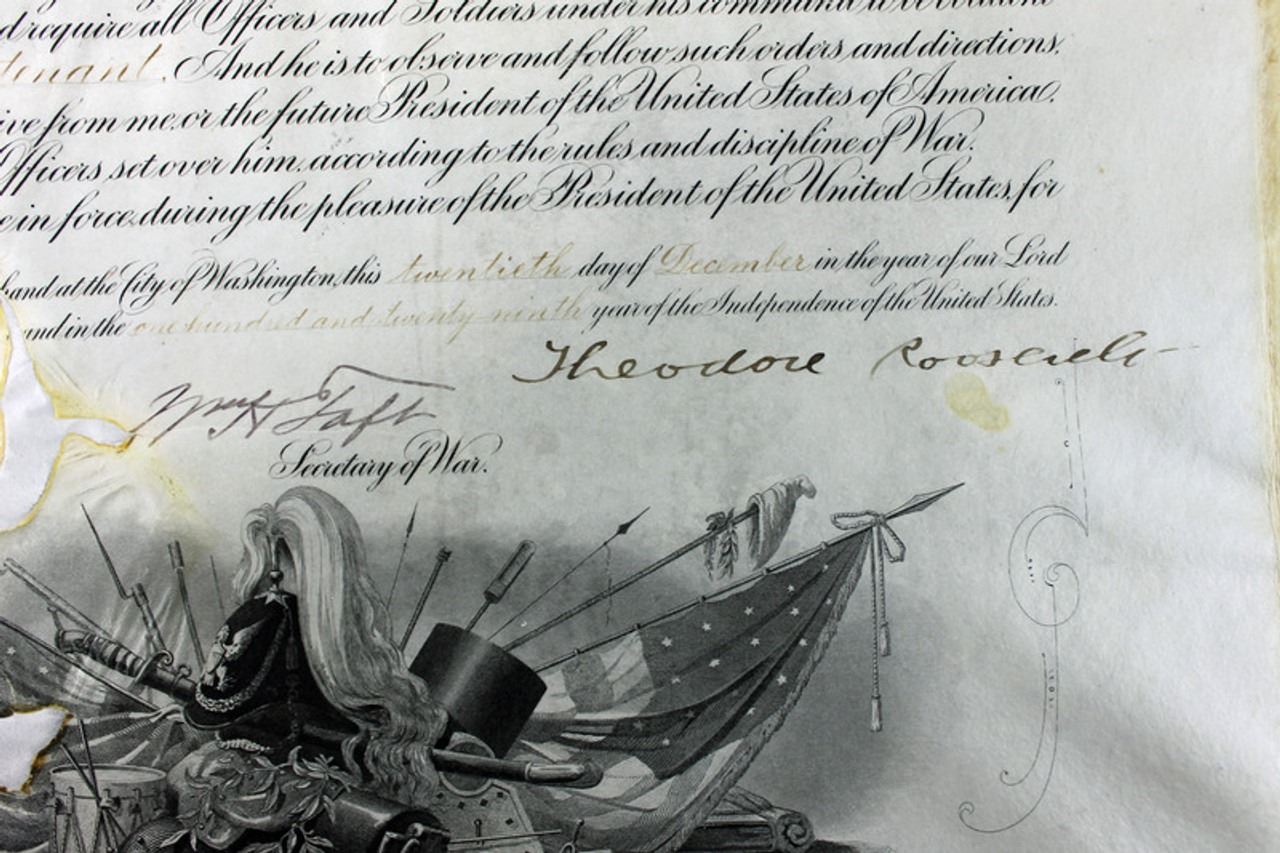 d require all Officers and Soldiers under his command to be obedient
tenant. And he is to observe and follow such orders and directions,
ive from me, or the future President of the United States of America,
Officers set over him, according to the rules and discipline of War.
e in force, during the pleasure of the President of the United States, for
hand at the City of Washington, this twentieth day of December in the year of our Lord
and in the one hundred and twenty-ninth year of the Independence of the United States.
Theodore Roosevelt
Wm H Taft
Secretary of War.